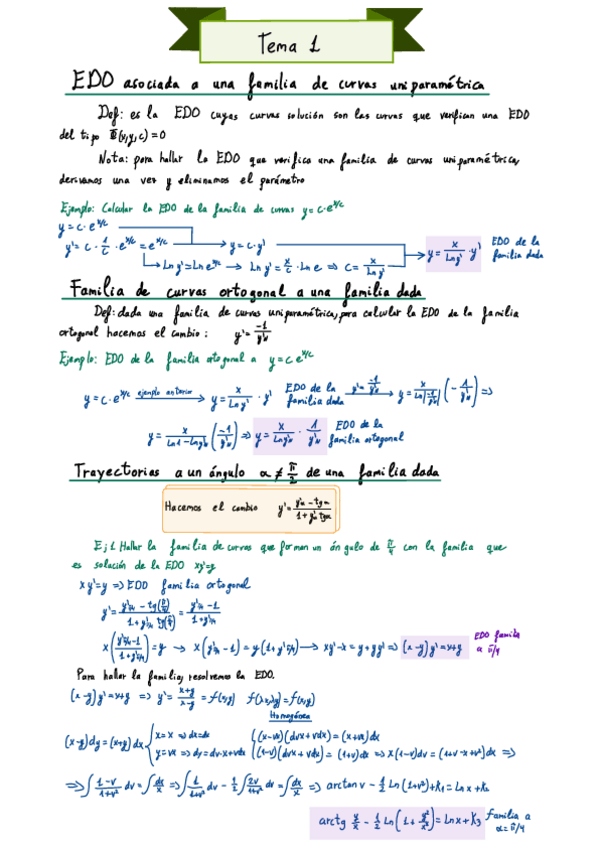 Tema 1
EDO asociada a una familia de curvas uniparamétrica
Def: es la EDO cuyas curvas solución son las curvas que verifican una EDO
del tipo Φ(y,y,c)=0
Nota: para hallar la EDO que verifica una familia de curvas uniparamétrica,
derivamos una vez y eliminamos el parámetro
Ejemplo: Calcular la EDO de la familia de curvas y=c·e^x/c
y=c·e^x/c
y'=c·1/c·e^x/c=e^x/c → y=c·y' → y=x/Lny'·y' EDO de la familia dada
Lny'=Lne^x/c → Lny'=x/c·Lne ⇒ c=x/Lny'
Familia de curvas ortogonal a una familia dada
Def: dada una familia de curvas uniparamétrica, para calcular la EDO de la familia
ortogonal hacemos el cambio: y'=-1/y'N
Ejemplo: EDO de la familia ortogonal a y=c e^x/c
y=c·e^x/c ejemplo anterior → y=x/Lny'·y' EDO de la familia dada y'=-1/y'N → y=x/Ln(-1/y'N)(-1/y'N) ⇒
y=x/Ln1-Lny'N(-1/y'N) ⇒ y=x/Lny'N·1/y'N EDO de la familia ortogonal
Trayectorias a un ángulo α≠π/2 de una familia dada
Hacemos el cambio y'=y'N-tgα/1+y'N tgα
Ej 1 Hallar la familia de curvas que forman un ángulo de π/4 con la familia que
es solución de la EDO xy'=y
xy'=y ⇒ EDO familia ortogonal
y'=y'π/4-tg(π/4)/1+y'π/4 tg(π/4)=y'π/4-1/1+y'π/4
x(y'π/4-1/1+y'π/4)=y → x(y'π/4-1)=y(1+y'π/4) → xy'-x=y+yy' ⇒ (x-y)y'=x+y EDO familia α π/4
Para hallar la familia, resolvemos la EDO.
(x-y)y'=x+y ⇒ y'=x+y/x-y=f(x,y) f(λx,λy)=f(x,y)
Homogénea
(x-y)dy=(x+y)dx {x=x ⇒ dx=dx {(x-vx)(dvx+vdx)=(x+vx)dx
y=vx ⇒ dy=dv·x+vdx {(1-v)(dvx+vdx)=(1+v)dx ⇒ x(1-v)dv=(1+v-v+v²)dx ⇒
⇒ ∫1-v/1+v² dv=∫dx/x ⇒ ∫1/1+v² dv-1/2∫2v/1+v² dv=∫dx/x ⇒ arctan v-1/2 Ln(1+v²)+K₁=Lnx+K₂
arctg y/x-1/2 Ln(1+y²/x²)=Lnx+K₃ familia a α=π/4